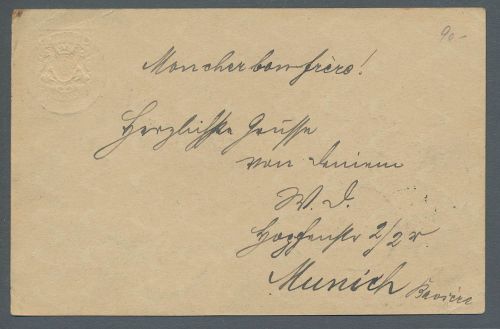 90.-
Moncher bon frère!
Herzlichste Grüsse
von deinem
W. D.
Hopfenstr 2/2 r.
Munich Bavière